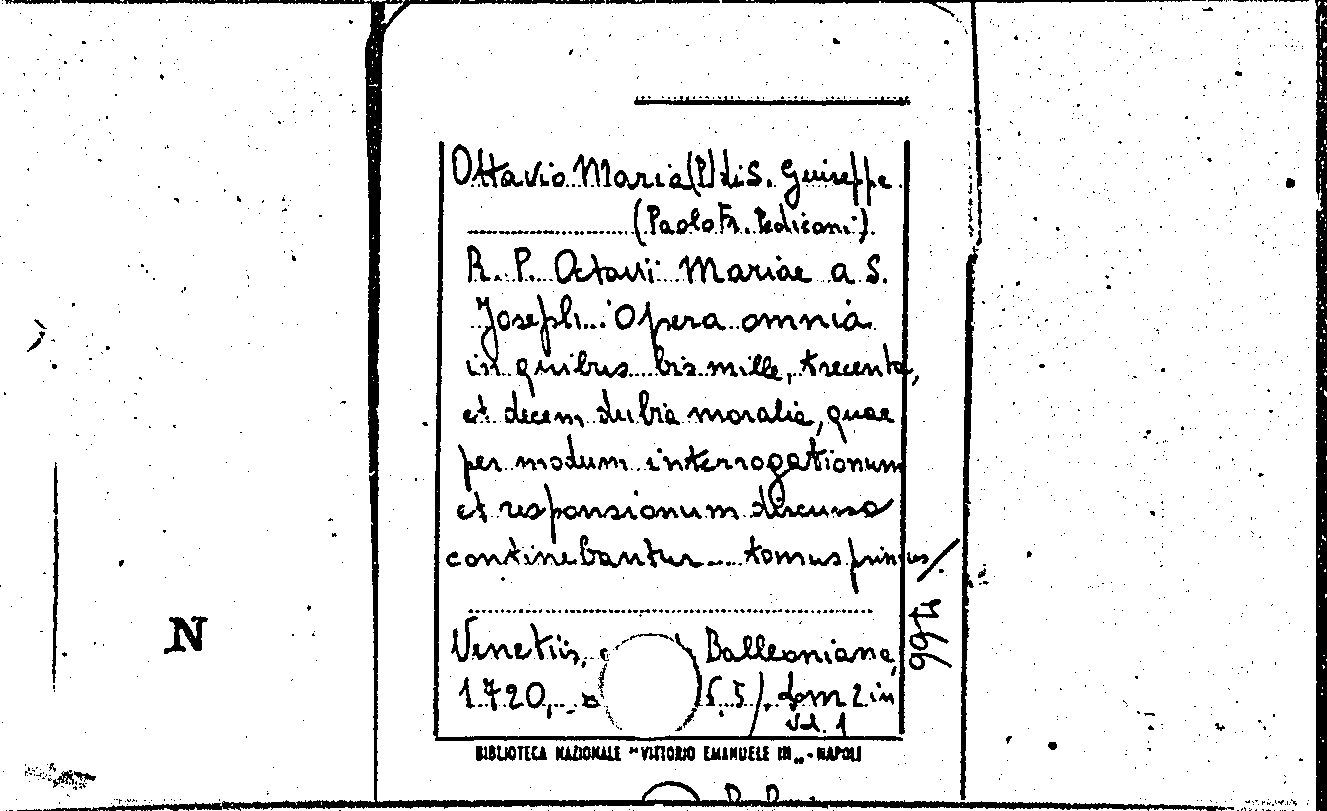 Ottavio Maria (P.) di S. Guiseppe
(Paolo Fr. Pedicani).
R. P. Octavii Mariae a S.
Joseph... Opera omnia
in quibus bis mille, trecenta,
et decem dubia moralia, quae
per modum interrogationum
et responsionum discurso
continebantur... tomus primus
Venetiis, Balleoniana,
1720, 5,5). tom 2 in
vol. 1
BIBLIOTECA NAZIONALE "VITTORIO EMANUELE III" - NAPOLI
N